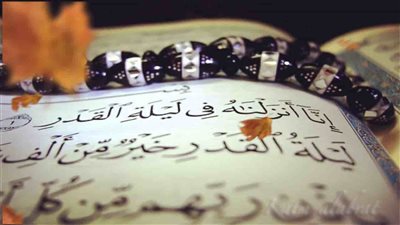 إِنَّا أَنزَلْنَٰهُ فِي لَيْلَةِ الْقَدْرِ ١
لَيْلَةُ الْقَدْرِ خَيْرٌ مِّنْ أَلْفِ
رَبِّهِم مِّن كُلِّ أَ